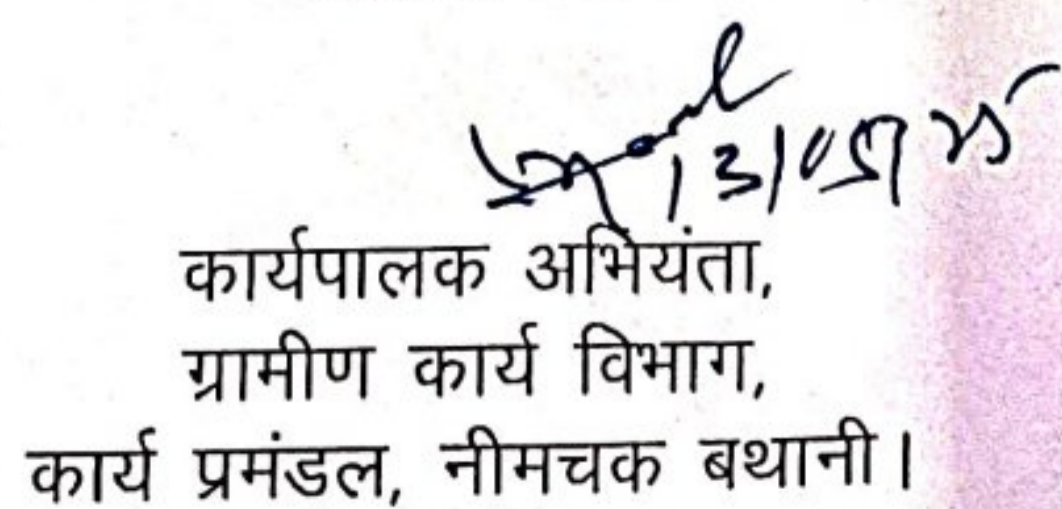 13/05/25
कार्यपालक अभियंता,
ग्रामीण कार्य विभाग,
कार्य प्रमंडल, नीमचक बथानी।